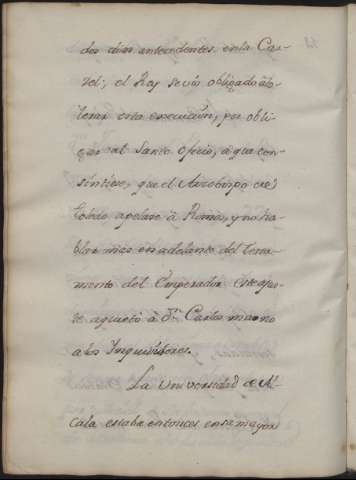 dos dias antecedentes en la Car-
zel; el Rey se vio obligado à to-
lerar esta execucion, por obli-
gar al Santo Oficio, à que con-
sintiese, que el Arzobispo de
toledo apelase à Roma, y no ha-
blar mas en adelante del testa-
mento del Emperador. Este ajus-
te aquietò à Dn. Carlos mas no
a los Inquisidores.
La Universidad de Al-
cala estaba entonces en su mayor